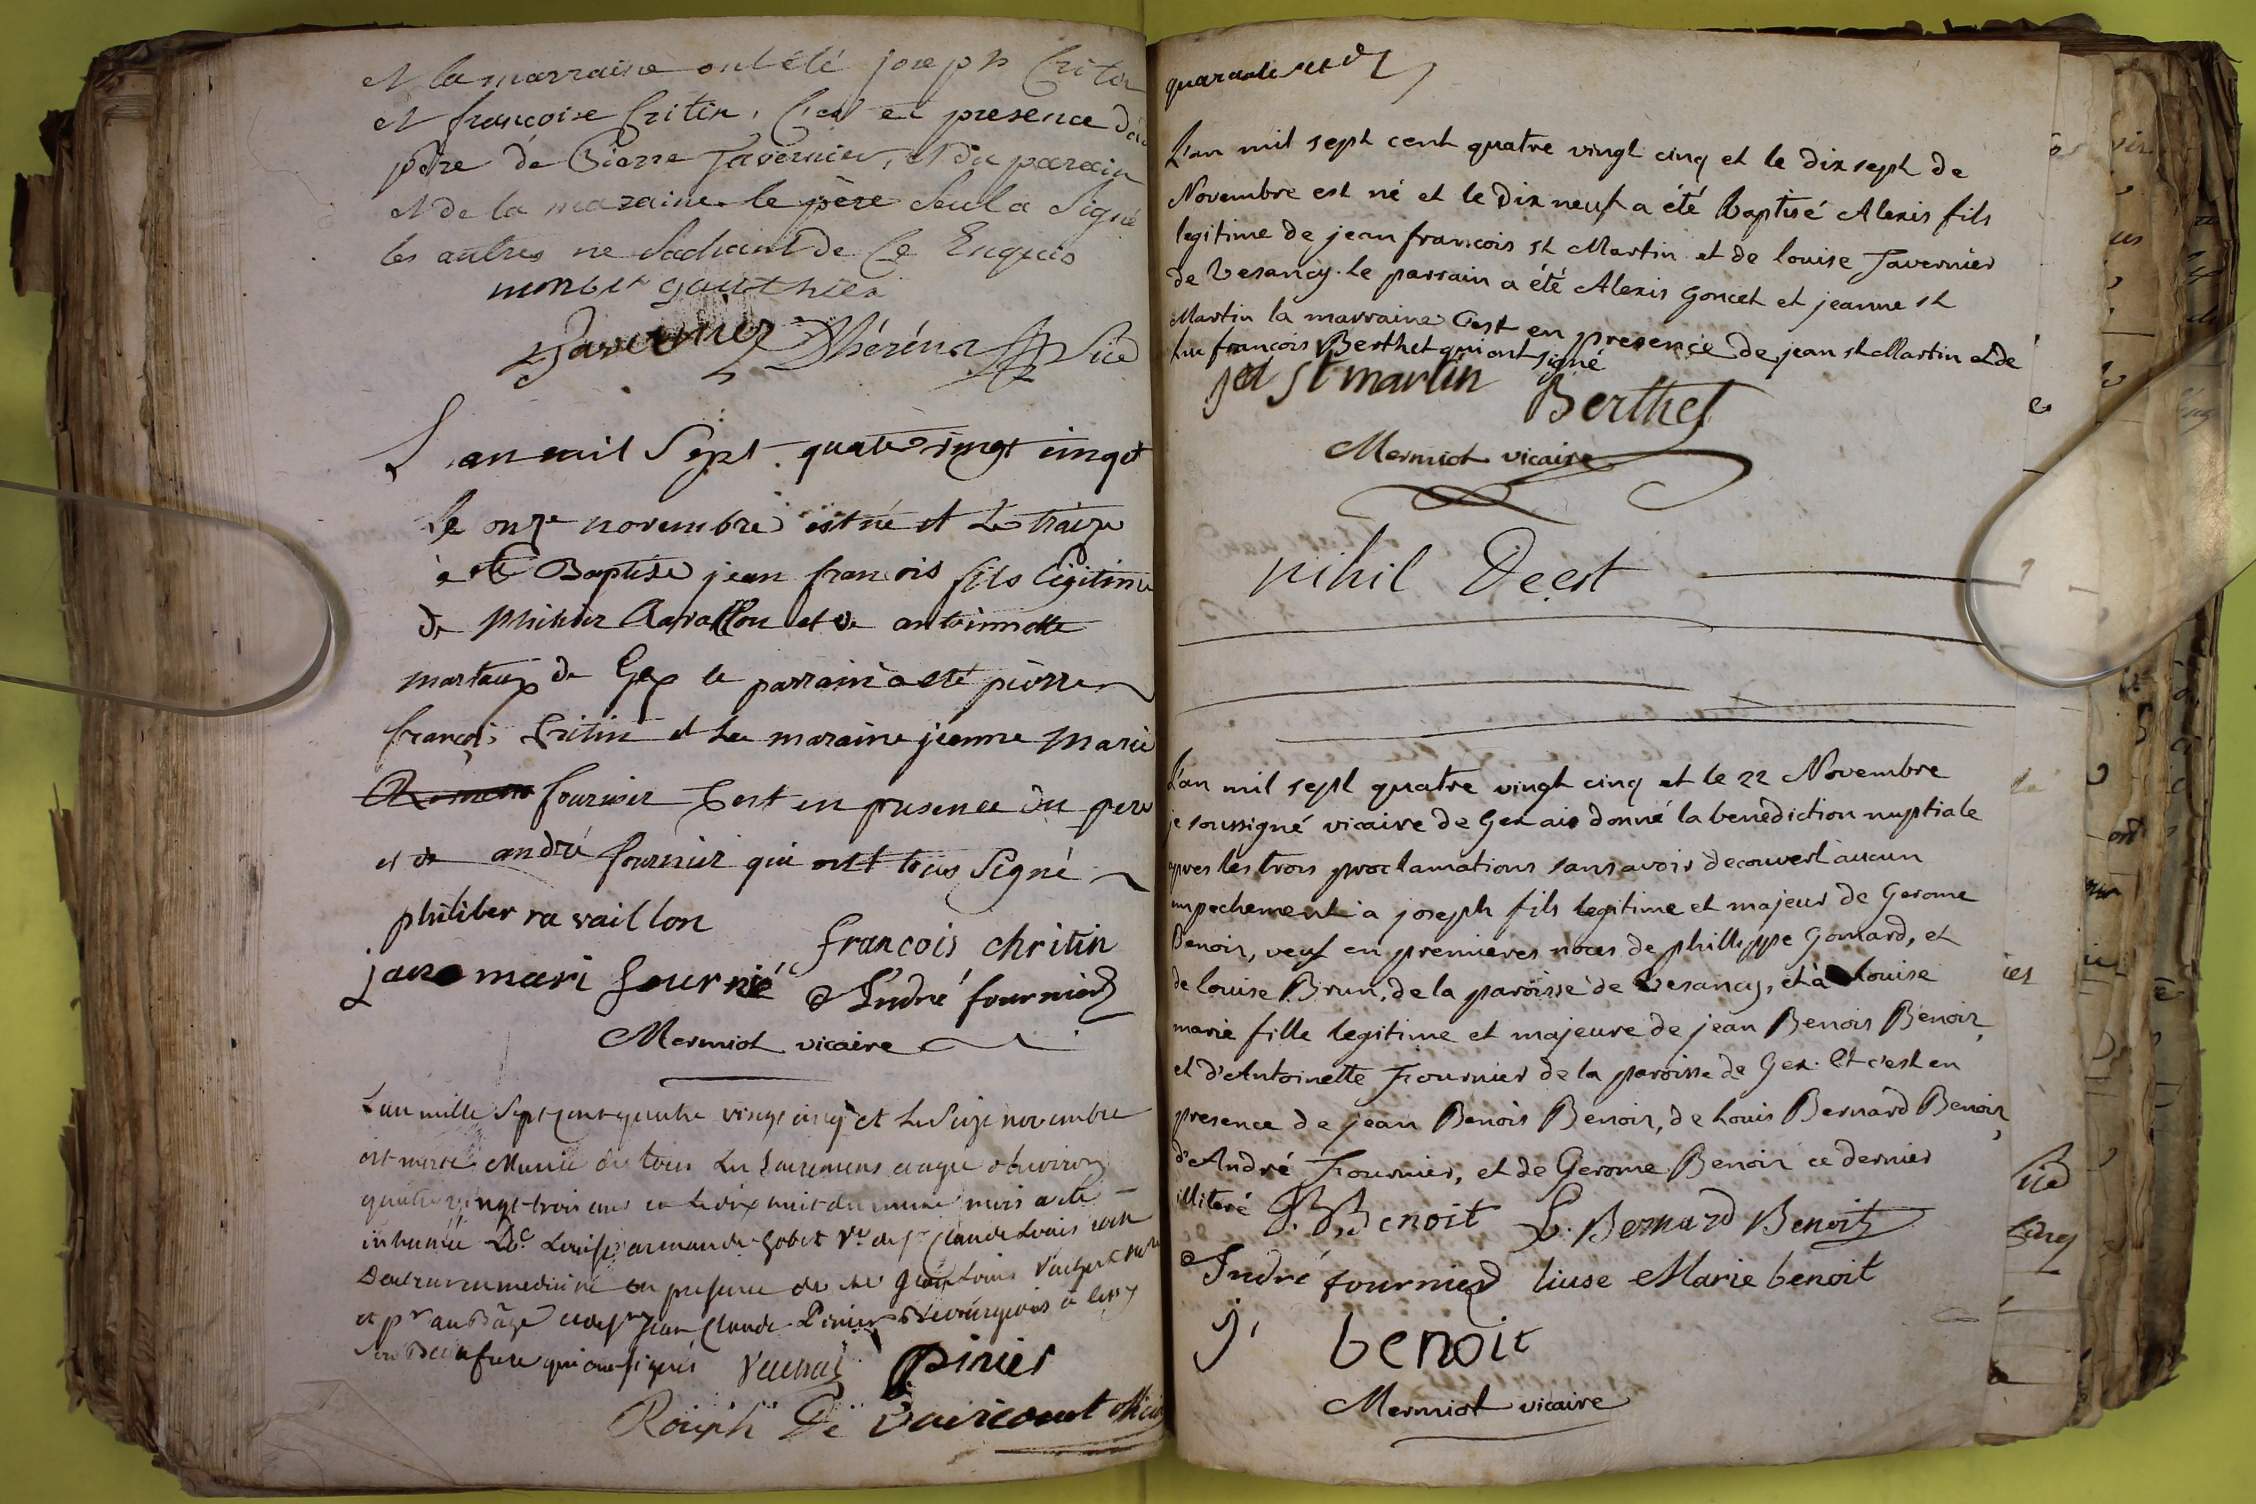 et la marraine ont été joseph Critin
et françoise Critin, C'est en presence du
père de Pierre Tavernier, et du parrain
et de la maraine le père Seul a Signé
les autres ne Sachant de Ce Enquis
Tavernier vice
L'an mil Sept quatre vingt cinq et
le onze novembre est né et Le traize
a été Baptisé jean francois fils légitime
de philiber Ravallion et de antoinnette
martaux de Gex le parrain a esté pierre
françois Critin et La maraine jeanne Marie
fournier C'est en presence du pere
et de andré fournier qui ont tous Signé
philiber ra vaillon
francois chritin
jane mari fournié
André fournier
Mermiot vicaire
L'an mille Sept cent quatre vingt cinq et Le Seize novembre
est morte Munie de tous Les Sacremens agée d'environ
quatre vingt-trois ans et Le dix huit du meme mois a été
inhumée De Louise armande Gobet Ve de Sr Claude Louis
Docteur en medicine en presence de
et Sr jean Claude Pinier Bourgeois
qui ont signés
Pinier
Roiph De Vaircourt
quarante sept
L'an mil sept cent quatre vingt cinq et le dix sept de
Novembre est né et le dix neuf a été Baptisé Alexis fils
legitime de jean francois st Martin et de louise Tavernier
de Vesancy. le parrain a été Alexis Goncet et jeanne st
Martin la marraine C'est en presence de jean st Martin et de
Luc francois Berthet qui ont signé
jea st martin
Berthet
Mermiot vicaire
nihil Deest
L'an mil sept quatre vingt cinq et le 22 Novembre
je soussigné vicaire de Gex ais donné la benediction nuptiale
apres les trois proclamations sans avoir decouvert aucun
empechement a joseph fils legitime et majeur de Gerome
Benoir, veuf en premieres noces de phillippe Gonard, et
de louise Brun, de la paroisse de Vesancy, et à Louise
marie fille legitime et majeure de jean Benois Benoir,
et d'Antoinette Fournier de la paroisse de Gex. Et c'est en
presence de jean Benois Benoir, de Louis Bernard Benoir,
d'André Fournier, et de Gerome Benoir ce dernier
illiteré
J. B. Benoit
L. Bernard Benoit
André fournier
liuse Marie benoit
j, benoit
Mermiot vicaire